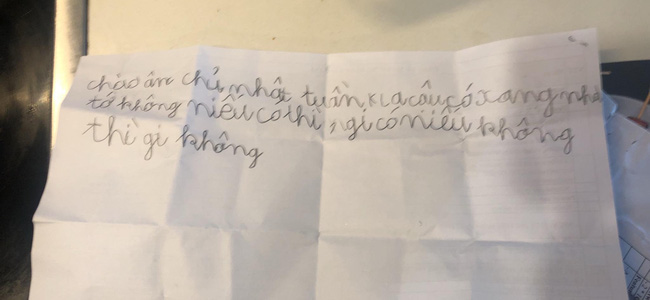 chào ân chủ nhật tuần kia cậu có xang nhà
tớ không niếu có thì, gi có niếu không
thì gi không